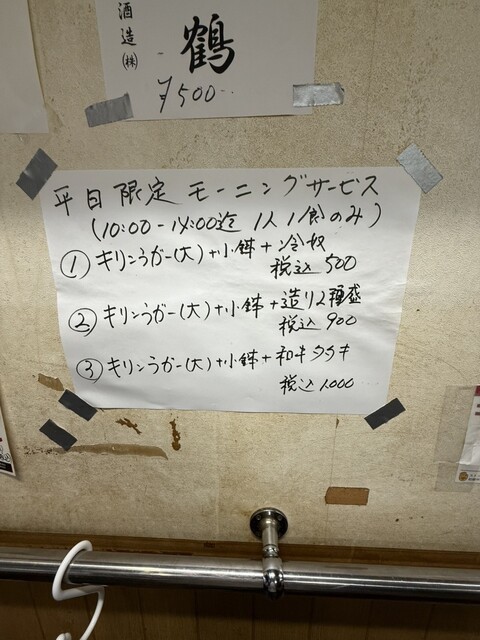 酒造(株)
鶴
¥500-
平日限定 モーニングサービス
(10:00-14:00迄 1人1食のみ)
① キリンラガー(大)+小鉢+冷奴
税込500
② キリンラガー(大)+小鉢+造り2種盛
税込900
③ キリンラガー(大)+小鉢+和牛タタキ
税込1000